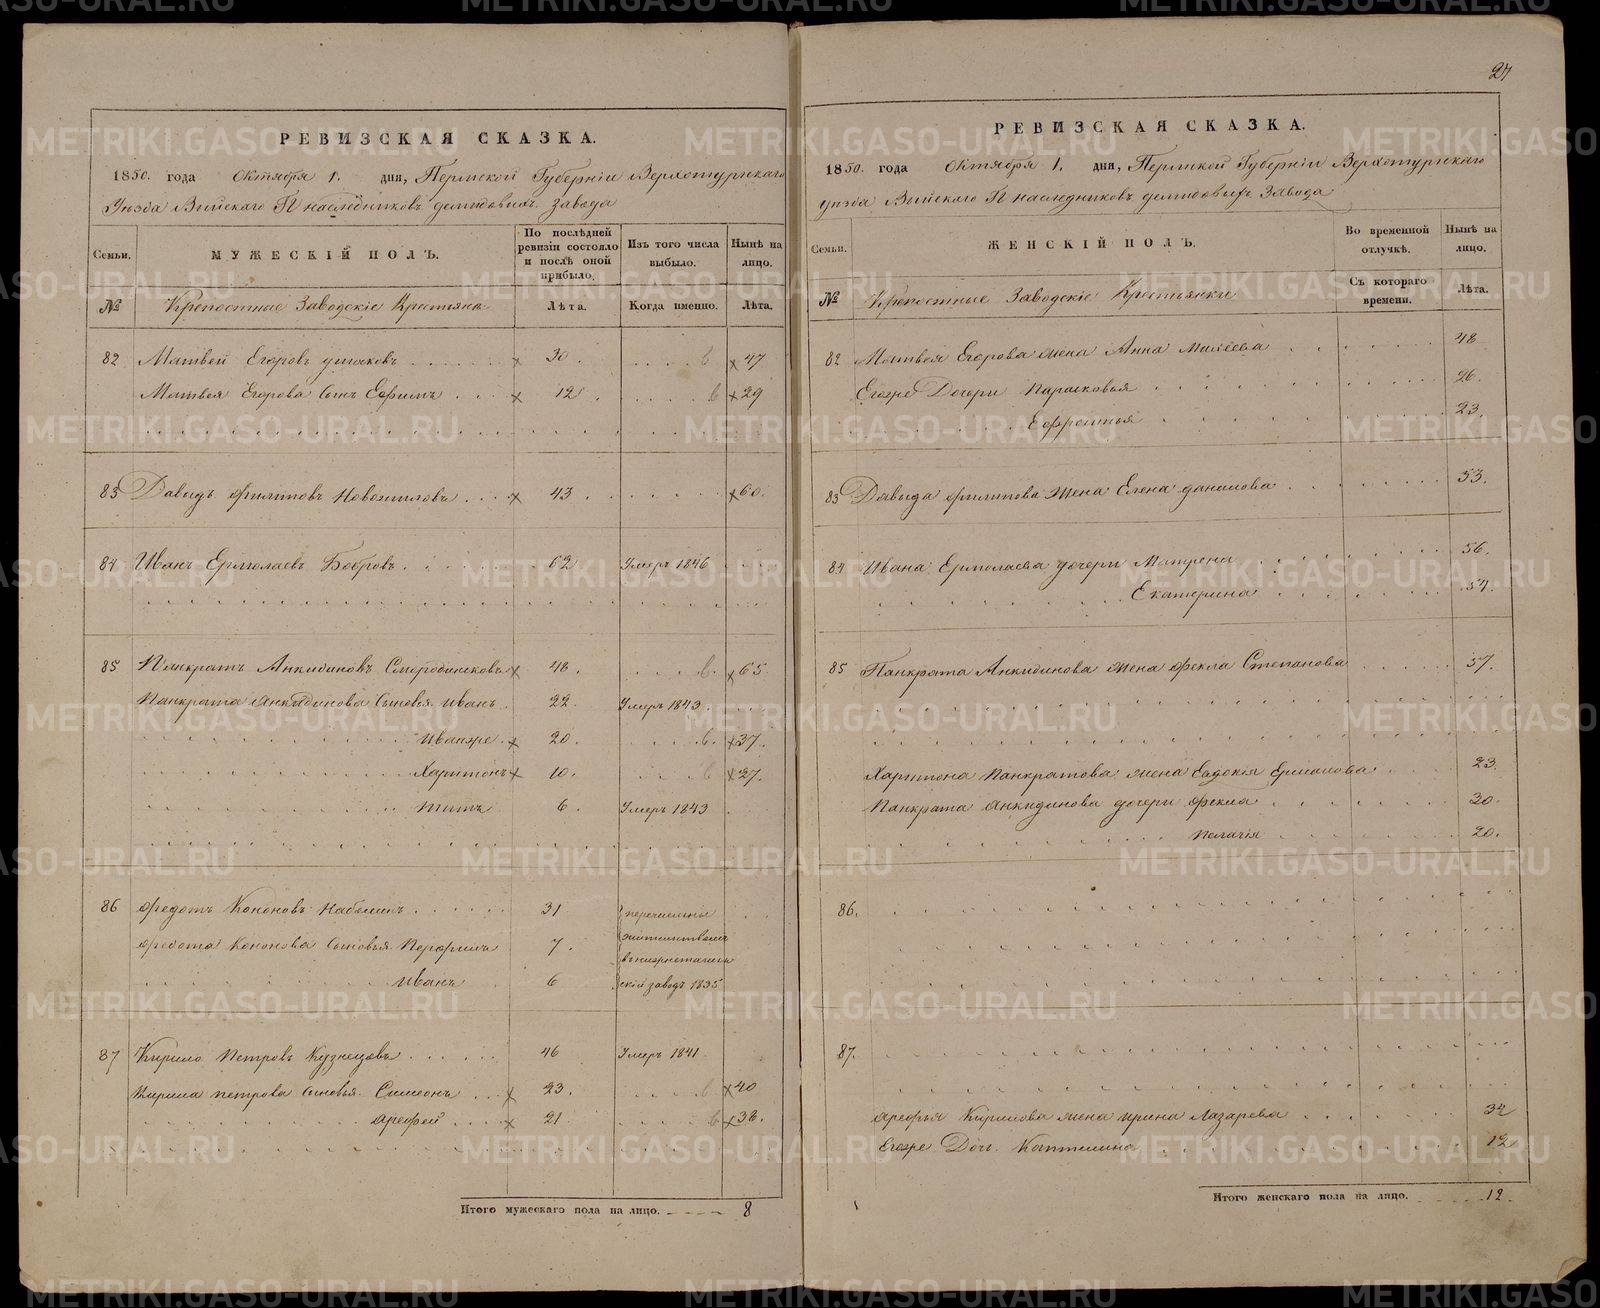 27
РЕВИЗСКАЯ СКАЗКА.
1850. года Октября 1. дня, Пермской Губерніи Верхотурскаго
Уѣзда Выйскаго ГГ наслѣдниковъ демидовыхъ завода
Семьи.
МУЖЕСКІЙ ПОЛЪ.
По послѣдней ревизіи состояло и послѣ оной прибыло.
Изъ того числа выбыло.
Нынѣ на лицо.
№
Крѣпостные Заводскіе Крестьяне
Лѣта.
Когда именно.
Лѣта.
82 Матвей Егоровъ 30. 47
Матвея Егорова Сынъ Ефимъ 12. 29
83 Давыдъ Филиповъ Новожиловъ 43. 60.
84 Иванъ Ермолаевъ Бобровъ 62 Умеръ 1846
85 Панкратъ Анкидиновъ Смородинсковъ 48. 65
Панкрата Анкидинова Сыновья Иванъ 22. Умеръ 1843.
Иванже 20. 37.
Харитонъ 10. 27.
Титъ 6. Умеръ 1843
86 Федотъ Кононовъ Набоиихъ 31 перечислены
Федота Кононова Сыновья Перфилъ 7. жительствомъ
внижнетагиль
Иванъ 6 скій заводъ 1835
87 Кирило Петровъ Кузнецовъ 46 Умеръ 1841
Кирила петрова Сыновья Симеонъ 23. 40
Арефей 21 38.
Итого мужескаго пола на лицо. 8
РЕВИЗСКАЯ СКАЗКА.
1850. года Октября 1. дня, Пермской Губерніи Верхотурскаго
уѣзда Выйскаго ГГ наслѣдниковъ демидовыхъ Завода
Семьи.
ЖЕНСКІЙ ПОЛЪ.
Во временной отлучкѣ.
Нынѣ на лицо.
№
Крѣпостные Заводскіе Крестьянки
Съ котораго времени.
Лѣта.
82 Матвея Егорова жена Анна Михеева 48
Егоже Дочери Парасковья 26.
Ефросинья 23.
83 Давыда Филипова Жена Елена данилова 53.
84 Ивана Ермолаева дочери Матрена 56.
Екатерина 54.
85 Панкрата Анкидинова жена Фекла Степанова 57.
Харитона Панкратова жена Евдокія Ермилова 23.
Панкрата Анкидинова дочери Фекла 30.
Пелагія 20.
86.
87.
Арефья Кирилова жена Ирина Лазарева 34
Егоже Дочь Капитолина 12
Итого женскаго пола на лицо. 12.
METRIKI.GASO-URAL.RU